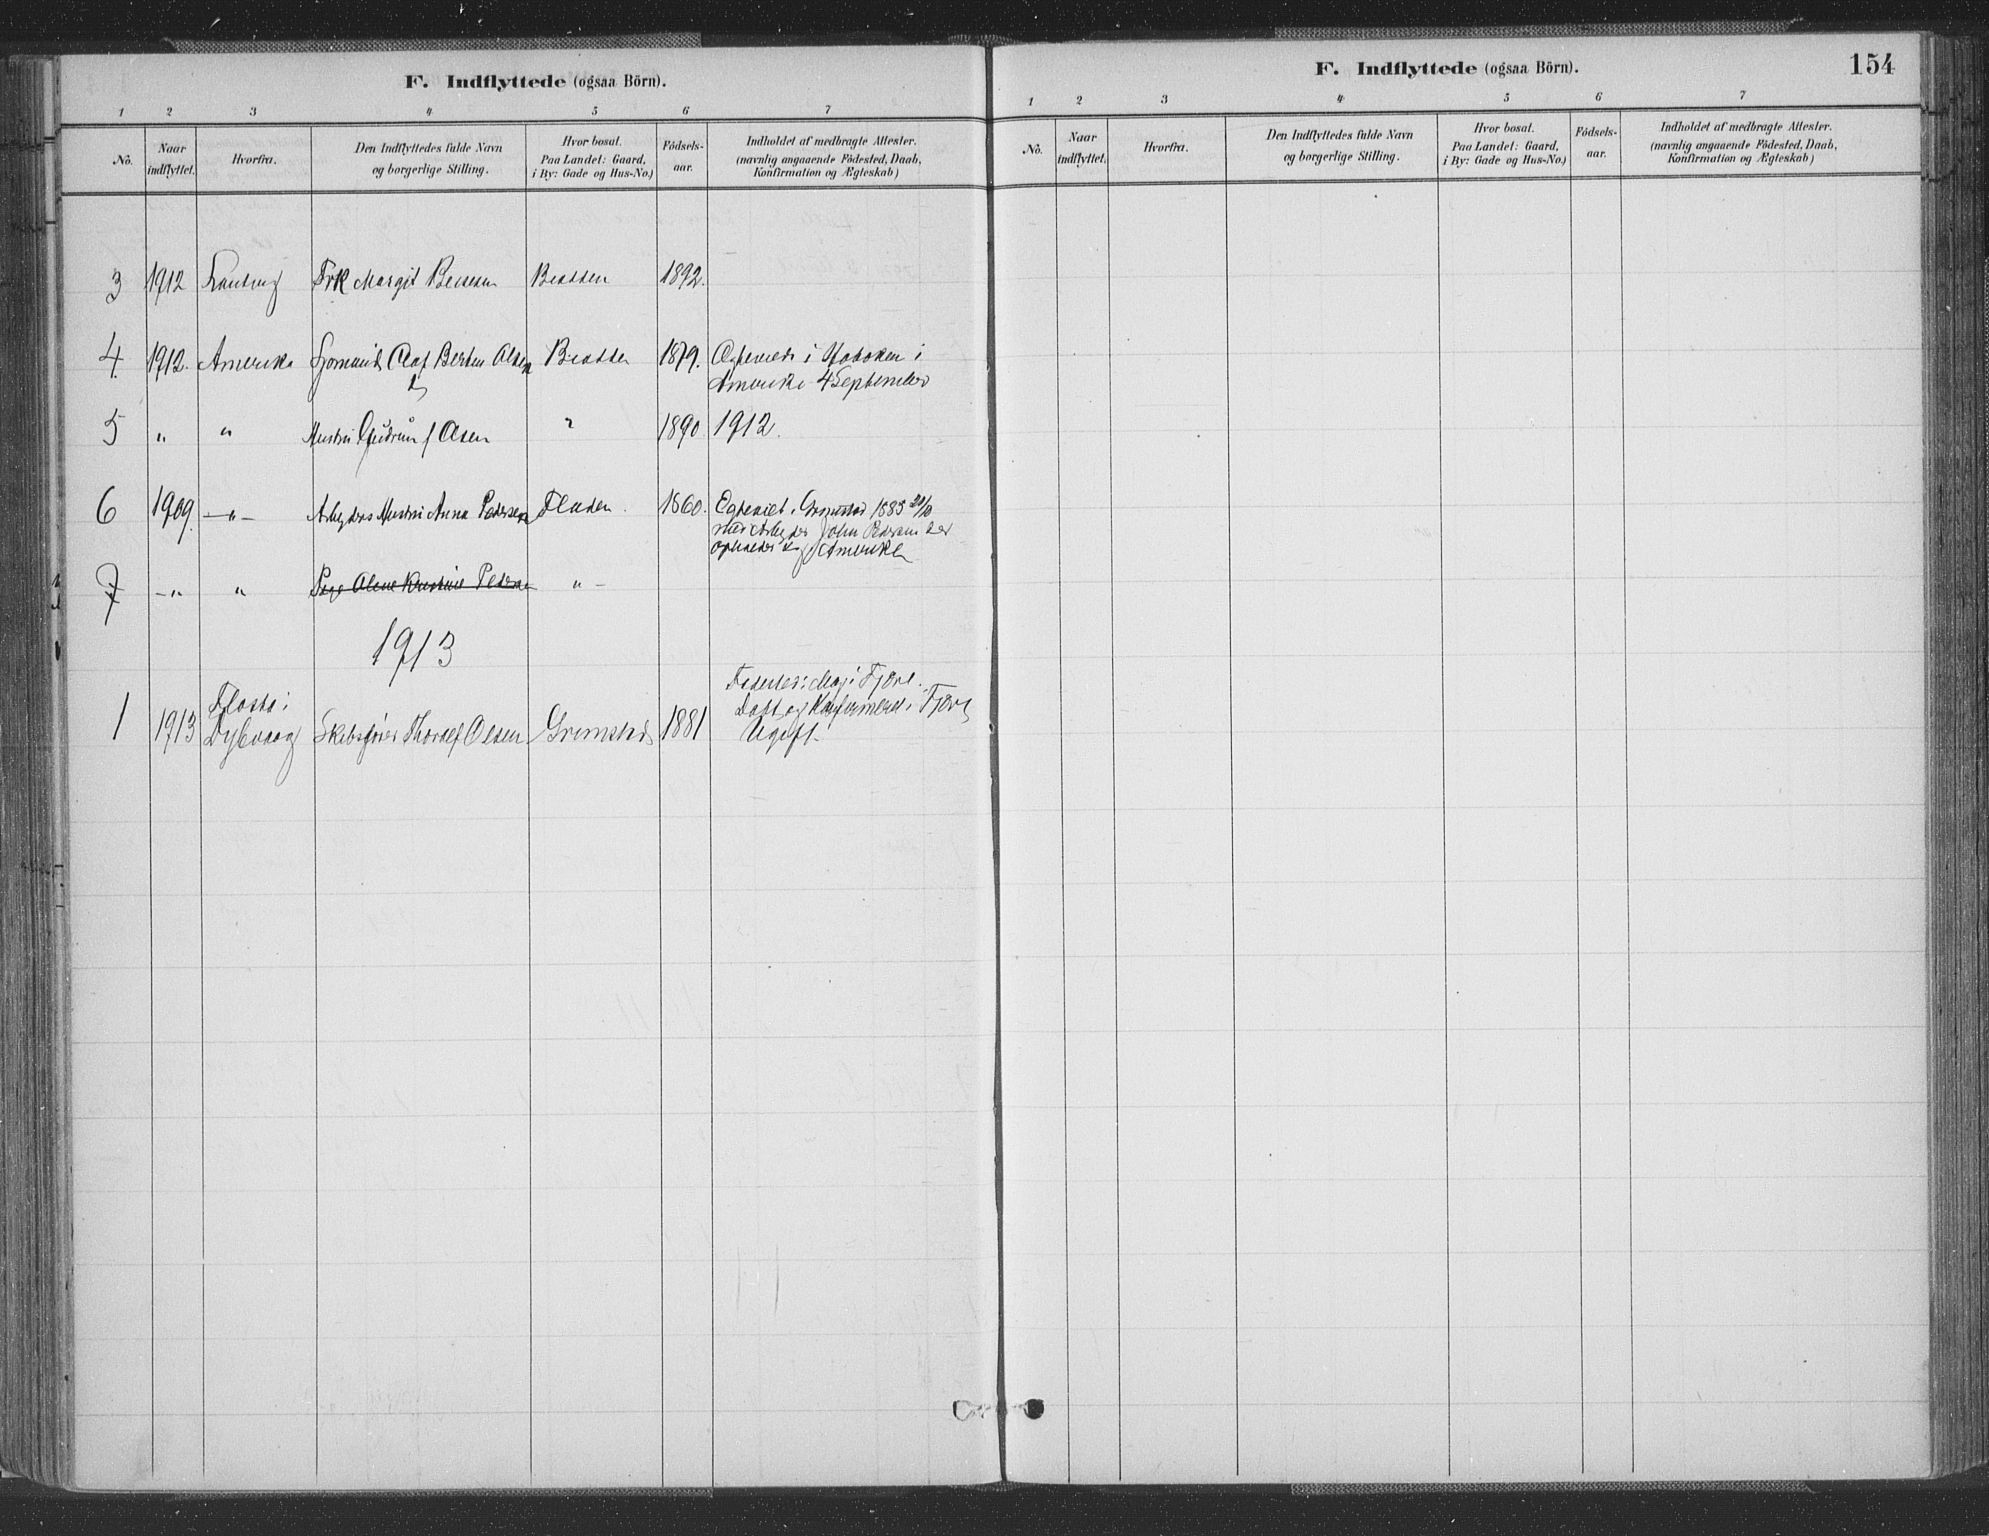 F. Indflyttede (ogsaa Börn).
1 2 3 4 5 6 7
No.
Naar
indflyttet.
Hvorfra.
Den Indflyttedes fulde Navn
og borgerlige Stilling.
Hvor bosat.
Paa Landet: Gaard,
i By: Gade og Hus-No.)
Födsels-
aar.
Indholdet af medbragte Attester.
(navnlig angaaende Födested, Daab,
Konfirmation og Ægteskab)
3 1912 Frk Margit 1892.
4. 1912. Amerika Olaf Olsen 1879. i Hoboken i
Amerika 4 September
5 " " Hustru Gudrun Olsen " 1890. 1912.
6 1909. -"- Arbeiders Hustru Anna Pedersen Fladen. 1860. Grimstad 1885
John Pedersen der
Amerika
7 -" " Pige Olene Kristine Pedersen " -
1913
1 1913 Flosta i
Dybvaag
Skibsfører Thoralf Olsen Grimstad 1881
Fjære.
Døbt og Konfirmeret i Fjære
Ugift.
F. Indflyttede (ogsaa Börn).
154
1 2 3 4 5 6 7
No.
Naar
indflyttet.
Hvorfra.
Den Indflyttedes fulde Navn
og borgerlige Stilling.
Hvor bosat.
Paa Landet: Gaard,
i By: Gade og Hus-No.)
Födsels-
aar.
Indholdet af medbragte Attester.
(navnlig angaaende Födested, Daab,
Konfirmation og Ægteskab)